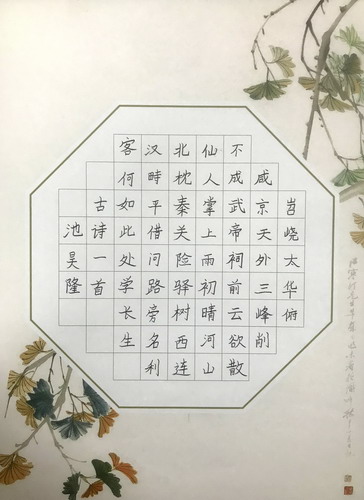 岧峣太华俯
咸京天外三峰削
不成武帝祠前云欲散
仙人掌上雨初晴河山
北枕秦关险驿树西连
汉時平借问路旁名利
客何如此处学长生
古诗一首
池昊隆